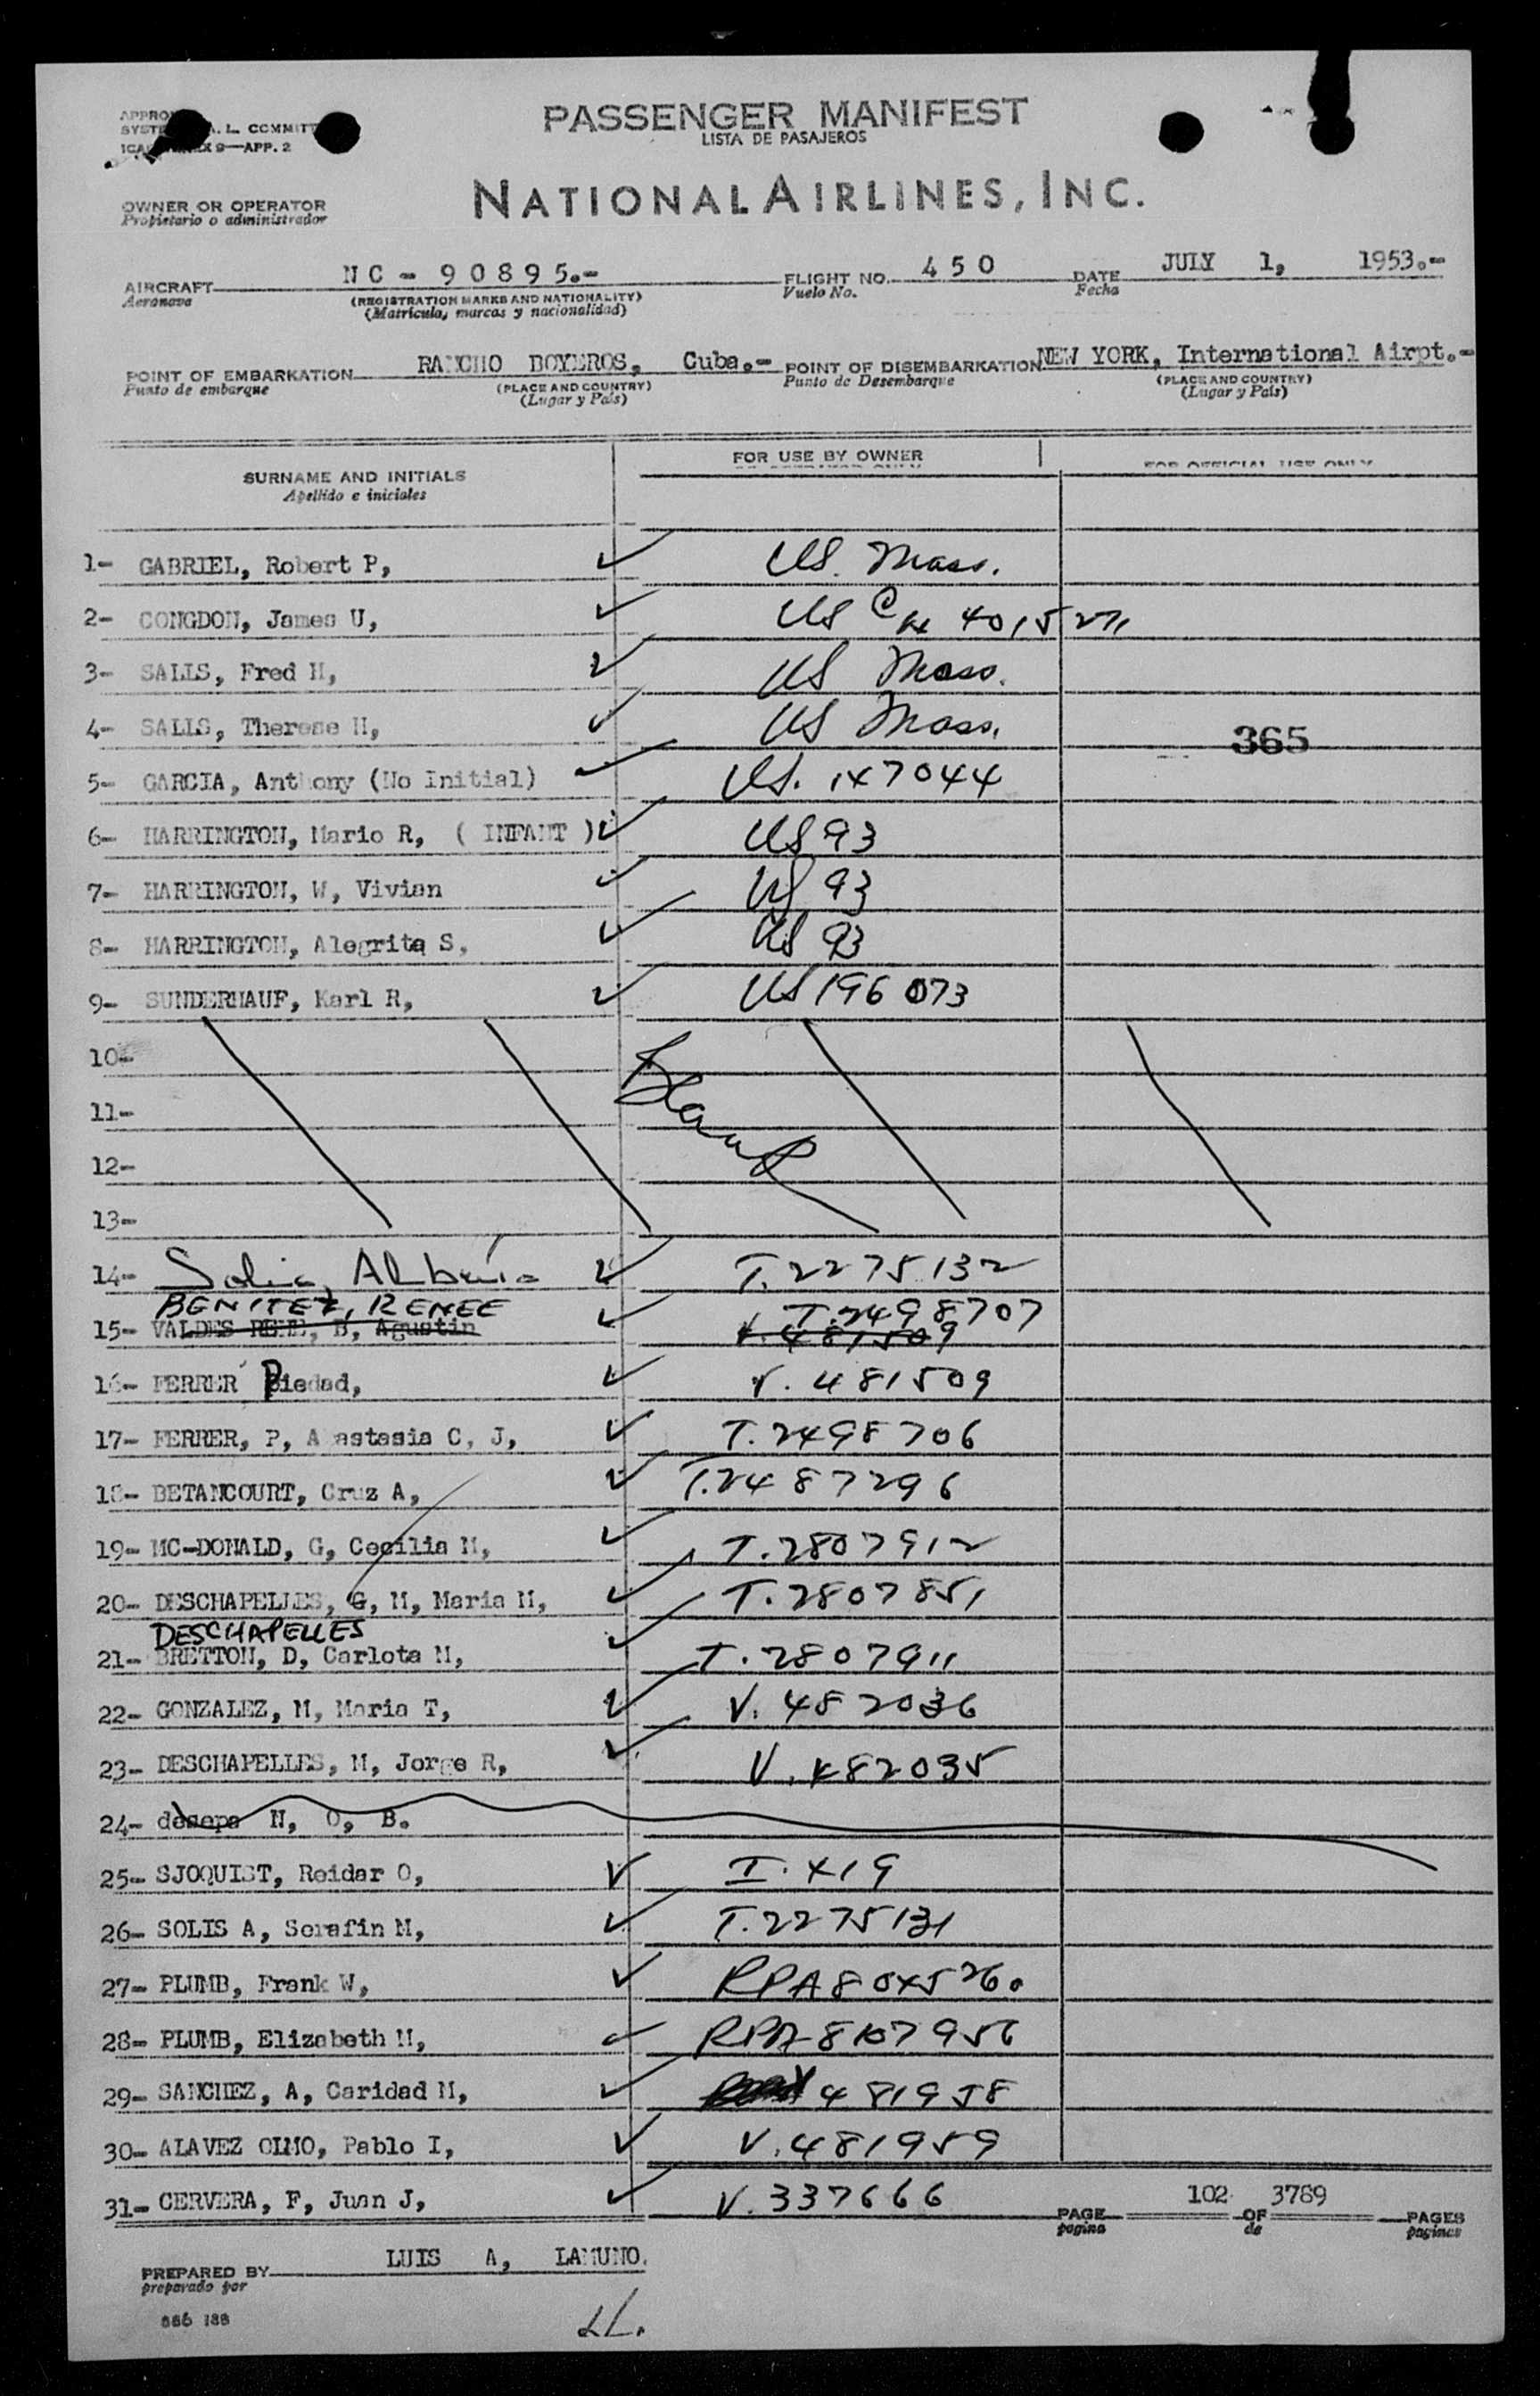 PASSENGER MANIFEST
LISTA DE PASAJEROS
A. L. COMMITT
9—APP. 2
NATIONAL AIRLINES, INC.
OWNER OR OPERATOR
Propietario o administrador
AIRCRAFT NC - 90895.- FLIGHT NO. 450 DATE JULY 1, 1953.-
Aeronave (REGISTRATION MARKS AND NATIONALITY) Vuelo No. Fecha
(Matricula, marcas y nacionalidad)
POINT OF EMBARKATION RANCHO BOYEROS, Cuba.- POINT OF DISEMBARKATION NEW YORK, International Airpt.-
Punto de embarque (PLACE AND COUNTRY) Punto de Desembarque (PLACE AND COUNTRY)
(Lugar y País) (Lugar y País)
SURNAME AND INITIALS FOR USE BY OWNER FOR OFFICIAL USE ONLY
Apellido e iniciales
1- GABRIEL, Robert P, ✓ US. Mass.
2- CONGDON, James U, ✓ US
3- SALLS, Fred H, ✓ US Mass.
4- SALLS, Therese H, ✓ US Mass.
365
5- GARCIA, Anthony (No Initial) ✓ US. 147044
6- HARRINGTON, Mario R, ( INFANT ) ✓ US 93
7- HARRINGTON, W, Vivian ✓ US 93
8- HARRINGTON, Alegrita S, ✓ US 93
9- SUNDERHAUF, Karl R, ✓ US 196073
10-
Blank
11-
12-
13-
14- Solis, ✓ T. 2275132
BENITEZ, RENEE ✓ T. 2498707
15- VALDES B, Agustin V. 481509
16- FERRER Piedad, ✓ V. 481509
17- FERRER, P, Anastasia C, J, ✓ T. 2498706
18- BETANCOURT, Cruz A, ✓ T. 2487296
19- MC-DONALD, G, Cecilia M, ✓ T. 2807912
20- DESCHAPELLES, G, M, Maria M, ✓ T. 2807851
DESCHAPELLES
21- BRETTON, D, Carlota M, ✓ T. 2807911
22- GONZALEZ, M, Maria T, ✓ V. 482036
23- DESCHAPELLES, M, Jorge R, ✓ V. 482035
24- N, O, B.
25- SJOQUIST, Reidar O, ✓ I. 419
26- SOLIS A, Serafin M, ✓ T. 2275131
27- PLUMB, Frank W, ✓ RPA 8045260
28- PLUMB, Elizabeth M, ✓ RPA 8107956
29- SANCHEZ, A, Caridad M, ✓ V 481958
30- ALAVEZ OLMO, Pablo I, ✓ V. 481959
31- CERVERA, F, Juan J, ✓ V. 337666
PAGE 102 OF 3789 PAGES
pagina de paginas
PREPARED BY LUIS A, LAMUNO.
preparado por
LL.